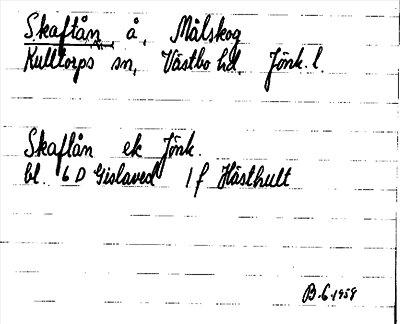 Skaftån å, Målskog
Kulltorps sn, Västbo hd, Jönk. l.
Skaftån ek Jönk.
bl. 6 D Gislaved 1 f Hästhult
B. 6 1958